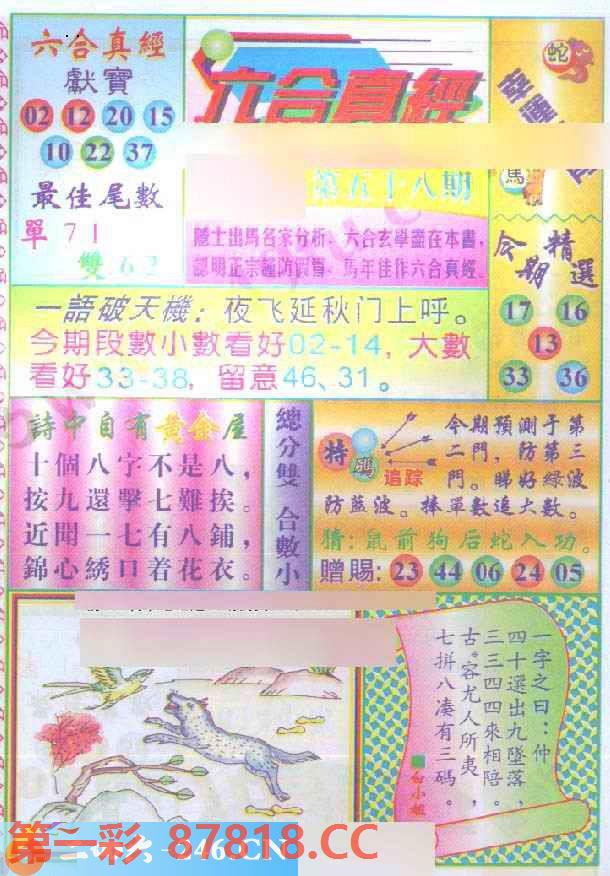 六合真經
獻寶
02 12 20 15
10 22 37
最佳尾數
單 71
雙 62
六合真經
第五十八期
隱士出馬名家分析，六合玄學盡在本書，
認明正宗謹防假冒，馬年佳作六合真經。
蛇
馬
今期精選
17 16
13
33 36
一語破天機：夜飞延秋门上呼。
今期段數小數看好02-14，大數
看好33-38，留意46、31。
詩中自有黃金屋
十個八字不是八，
按九還擊七難挨。
近聞一七有八鋪，
錦心綉口着花衣。
總分雙 合數小
特
碼
追踪
今期預測于第
二門，防第三
門。睇好綠波
防藍波。捧單數追大數。
猜：鼠前狗后蛇入功。
赠賜：23 44 06 24 05
一字之曰：仲
四十選出九墜落，
三三四四來相陪。
古。容尤人所夷，
七拼八凑有三碼。
白小姐
第一彩 87818.CC
246.CN